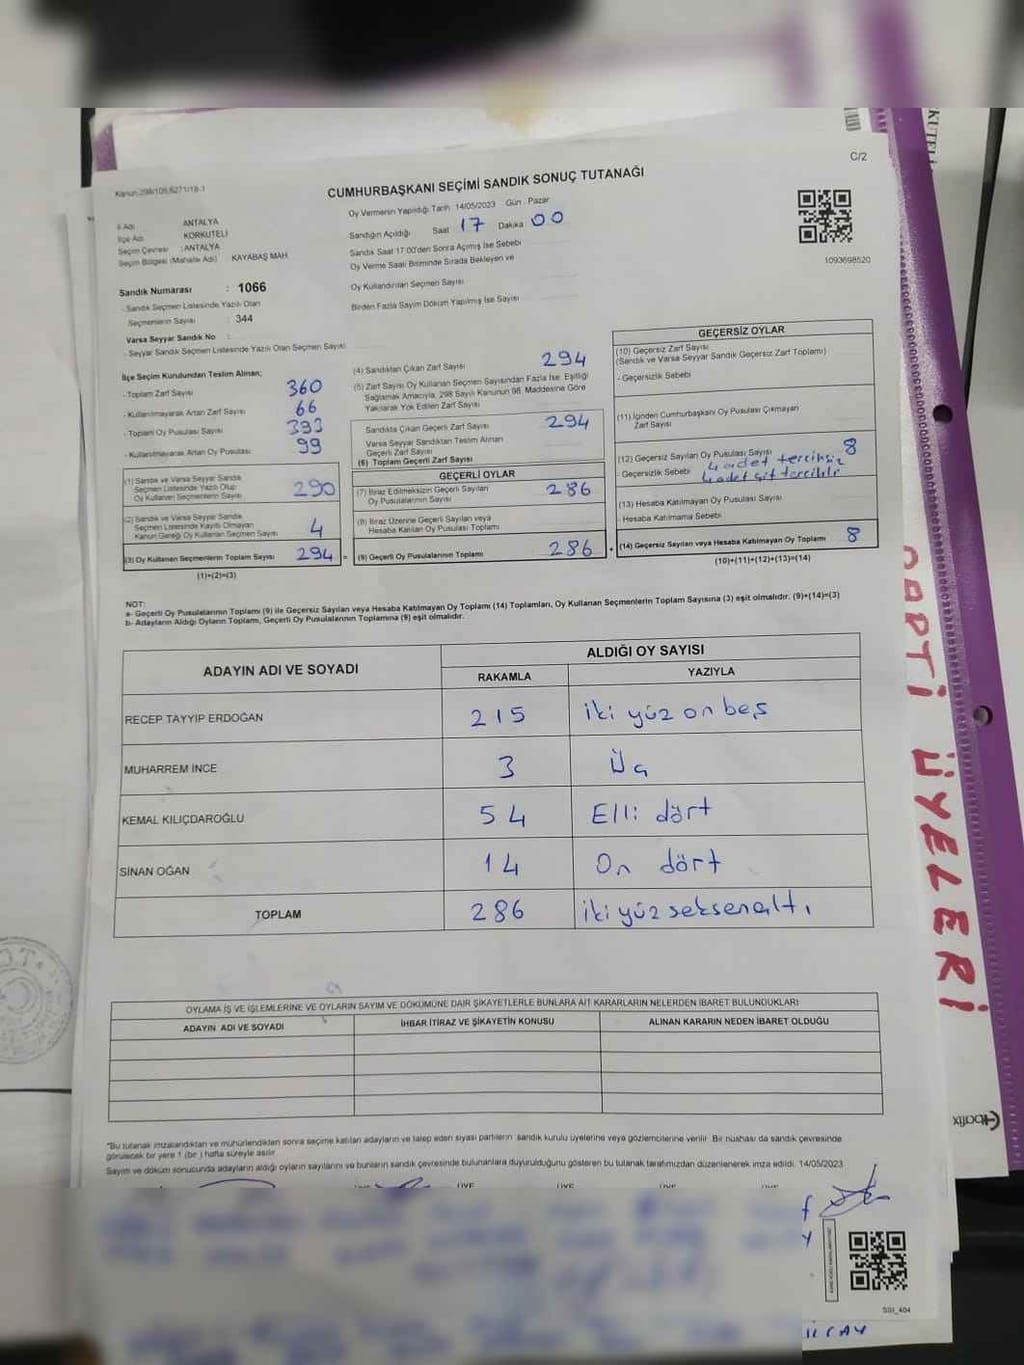 Kanun:298/105,6271/18-1
C/2
CUMHURBAŞKANI SEÇİMİ SANDIK SONUÇ TUTANAĞI
İl Adı ANTALYA
İlçe Adı KORKUTELİ
Seçim Çevresi : ANTALYA
Seçim Bölgesi (Mahalle Adı) KAYABAŞ MAH.
Oy Vermenin Yapıldığı Tarih 14/05/2023 Gün : Pazar
Sandığın Açıldığı Saat 17 Dakika 00
Sandık Saat 17:00'den Sonra Açımış İse Sebebi
Oy Verme Saati Bitiminde Sırada Bekleyen ve
Oy Kullandırılan Seçmen Sayısı
Birden Fazla Sayım Döküm Yapılmış İse Sayısı
1093698520
Sandık Numarası : 1066
- Sandık Seçmen Listesinde Yazılı Olan
Seçmenlerin Sayısı : 344
Varsa Seyyar Sandık No :
- Seyyar Sandık Seçmen Listesinde Yazılı Olan Seçmen Sayısı
İlçe Seçim Kurulundan Teslim Alınan;
- Toplam Zarf Sayısı 360
- Kullanılmayarak Artan Zarf Sayısı 66
- Toplam Oy Pusulası Sayısı 393
- Kullanılmayarak Artan Oy Pusulası 99
(1) Sandık ve Varsa Seyyar Sandık
Seçmen Listesinde Yazılı Olup
Oy Kullanan Seçmenlerin Sayısı 290
(2) Sandık ve Varsa Seyyar Sandık
Seçmen Listesinde Kayıtlı Olmayan
Kanun Gereği Oy Kullanan Seçmen Sayısı 4
(3) Oy Kullanan Seçmenlerin Toplam Sayısı 294 =
(1)+(2)=(3)
(4) Sandıktan Çıkan Zarf Sayısı 294
(5) Zarf Sayısı Oy Kullanan Seçmen Sayısından Fazla İse, Eşitliği
Sağlamak Amacıyla, 298 Sayılı Kanunun 98. Maddesine Göre
Yakılarak Yok Edilen Zarf Sayısı
Sandıkta Çıkan Geçerli Zarf Sayısı 294
Varsa Seyyar Sandıktan Teslim Alınan
Geçerli Zarf Sayısı
(6) Toplam Geçerli Zarf Sayısı
GEÇERLİ OYLAR
(7) İtiraz Edilmeksizin Geçerli Sayılan
Oy Pusulalarının Sayısı 286
(8) İtiraz Üzerine Geçerli Sayılan veya
Hesaba Katılan Oy Pusulası Toplamı
(9) Geçerli Oy Pusulalarının Toplamı 286 +
GEÇERSİZ OYLAR
(10) Geçersiz Zarf Sayısı
(Sandık ve Varsa Seyyar Sandık Geçersiz Zarf Toplamı)
- Geçersizlik Sebebi
(11) İçinden Cumhurbaşkanı Oy Pusulası Çıkmayan
Zarf Sayısı
(12) Geçersiz Sayılan Oy Pusulası Sayısı 8
- Geçersizlik Sebebi 4 adet tercihsiz
4 adet çift tercihli
(13) Hesaba Katılmayan Oy Pusulası Sayısı
- Hesaba Katılmama Sebebi
(14) Geçersiz Sayılan veya Hesaba Katılmayan Oy Toplamı 8
(10)+(11)+(12)+(13)=(14)
NOT:
a- Geçerli Oy Pusulalarının Toplamı (9) ile Geçersiz Sayılan veya Hesaba Katılmayan Oy Toplamı (14) Toplamları, Oy Kullanan Seçmenlerin Toplam Sayısına (3) eşit olmalıdır. (9)+(14)=(3)
b- Adayların Aldığı Oyların Toplamı, Geçerli Oy Pusulalarının Toplamına (9) eşit olmalıdır.
ADAYIN ADI VE SOYADI
ALDIĞI OY SAYISI
RAKAMLA YAZIYLA
RECEP TAYYİP ERDOĞAN 215 iki yüz on beş
MUHARREM İNCE 3 Üç
KEMAL KILIÇDAROĞLU 54 Elli dört
SİNAN OĞAN 14 On dört
TOPLAM 286 iki yüz seksen altı
OYLAMA İŞ VE İŞLEMLERİNE VE OYLARIN SAYIM VE DÖKÜMÜNE DAİR ŞİKAYETLERLE BUNLARA AİT KARARLARIN NELERDEN İBARET BULUNDUKLARI
ADAYIN ADI VE SOYADI İHBAR İTİRAZ VE ŞİKAYETİN KONUSU ALINAN KARARIN NEDEN İBARET OLDUĞU
"Bu tutanak imzalandıktan ve mühürlendikten sonra seçime katılan adayların ve talep eden siyasi partilerin sandık kurulu üyelerine veya gözlemcilerine verilir. Bir nüshası da sandık çevresinde
görülecek bir yere 1 (bir ) hafta süreyle asılır.
Sayım ve döküm sonucunda adayların aldığı oyların sayılarını ve bunların sandık çevresinde bulunanlara duyurulduğunu gösteren bu tutanak tarafımızdan düzenlenerek imza edildi. 14/05/2023
SSI_404
PARTİ ÜYELERİ